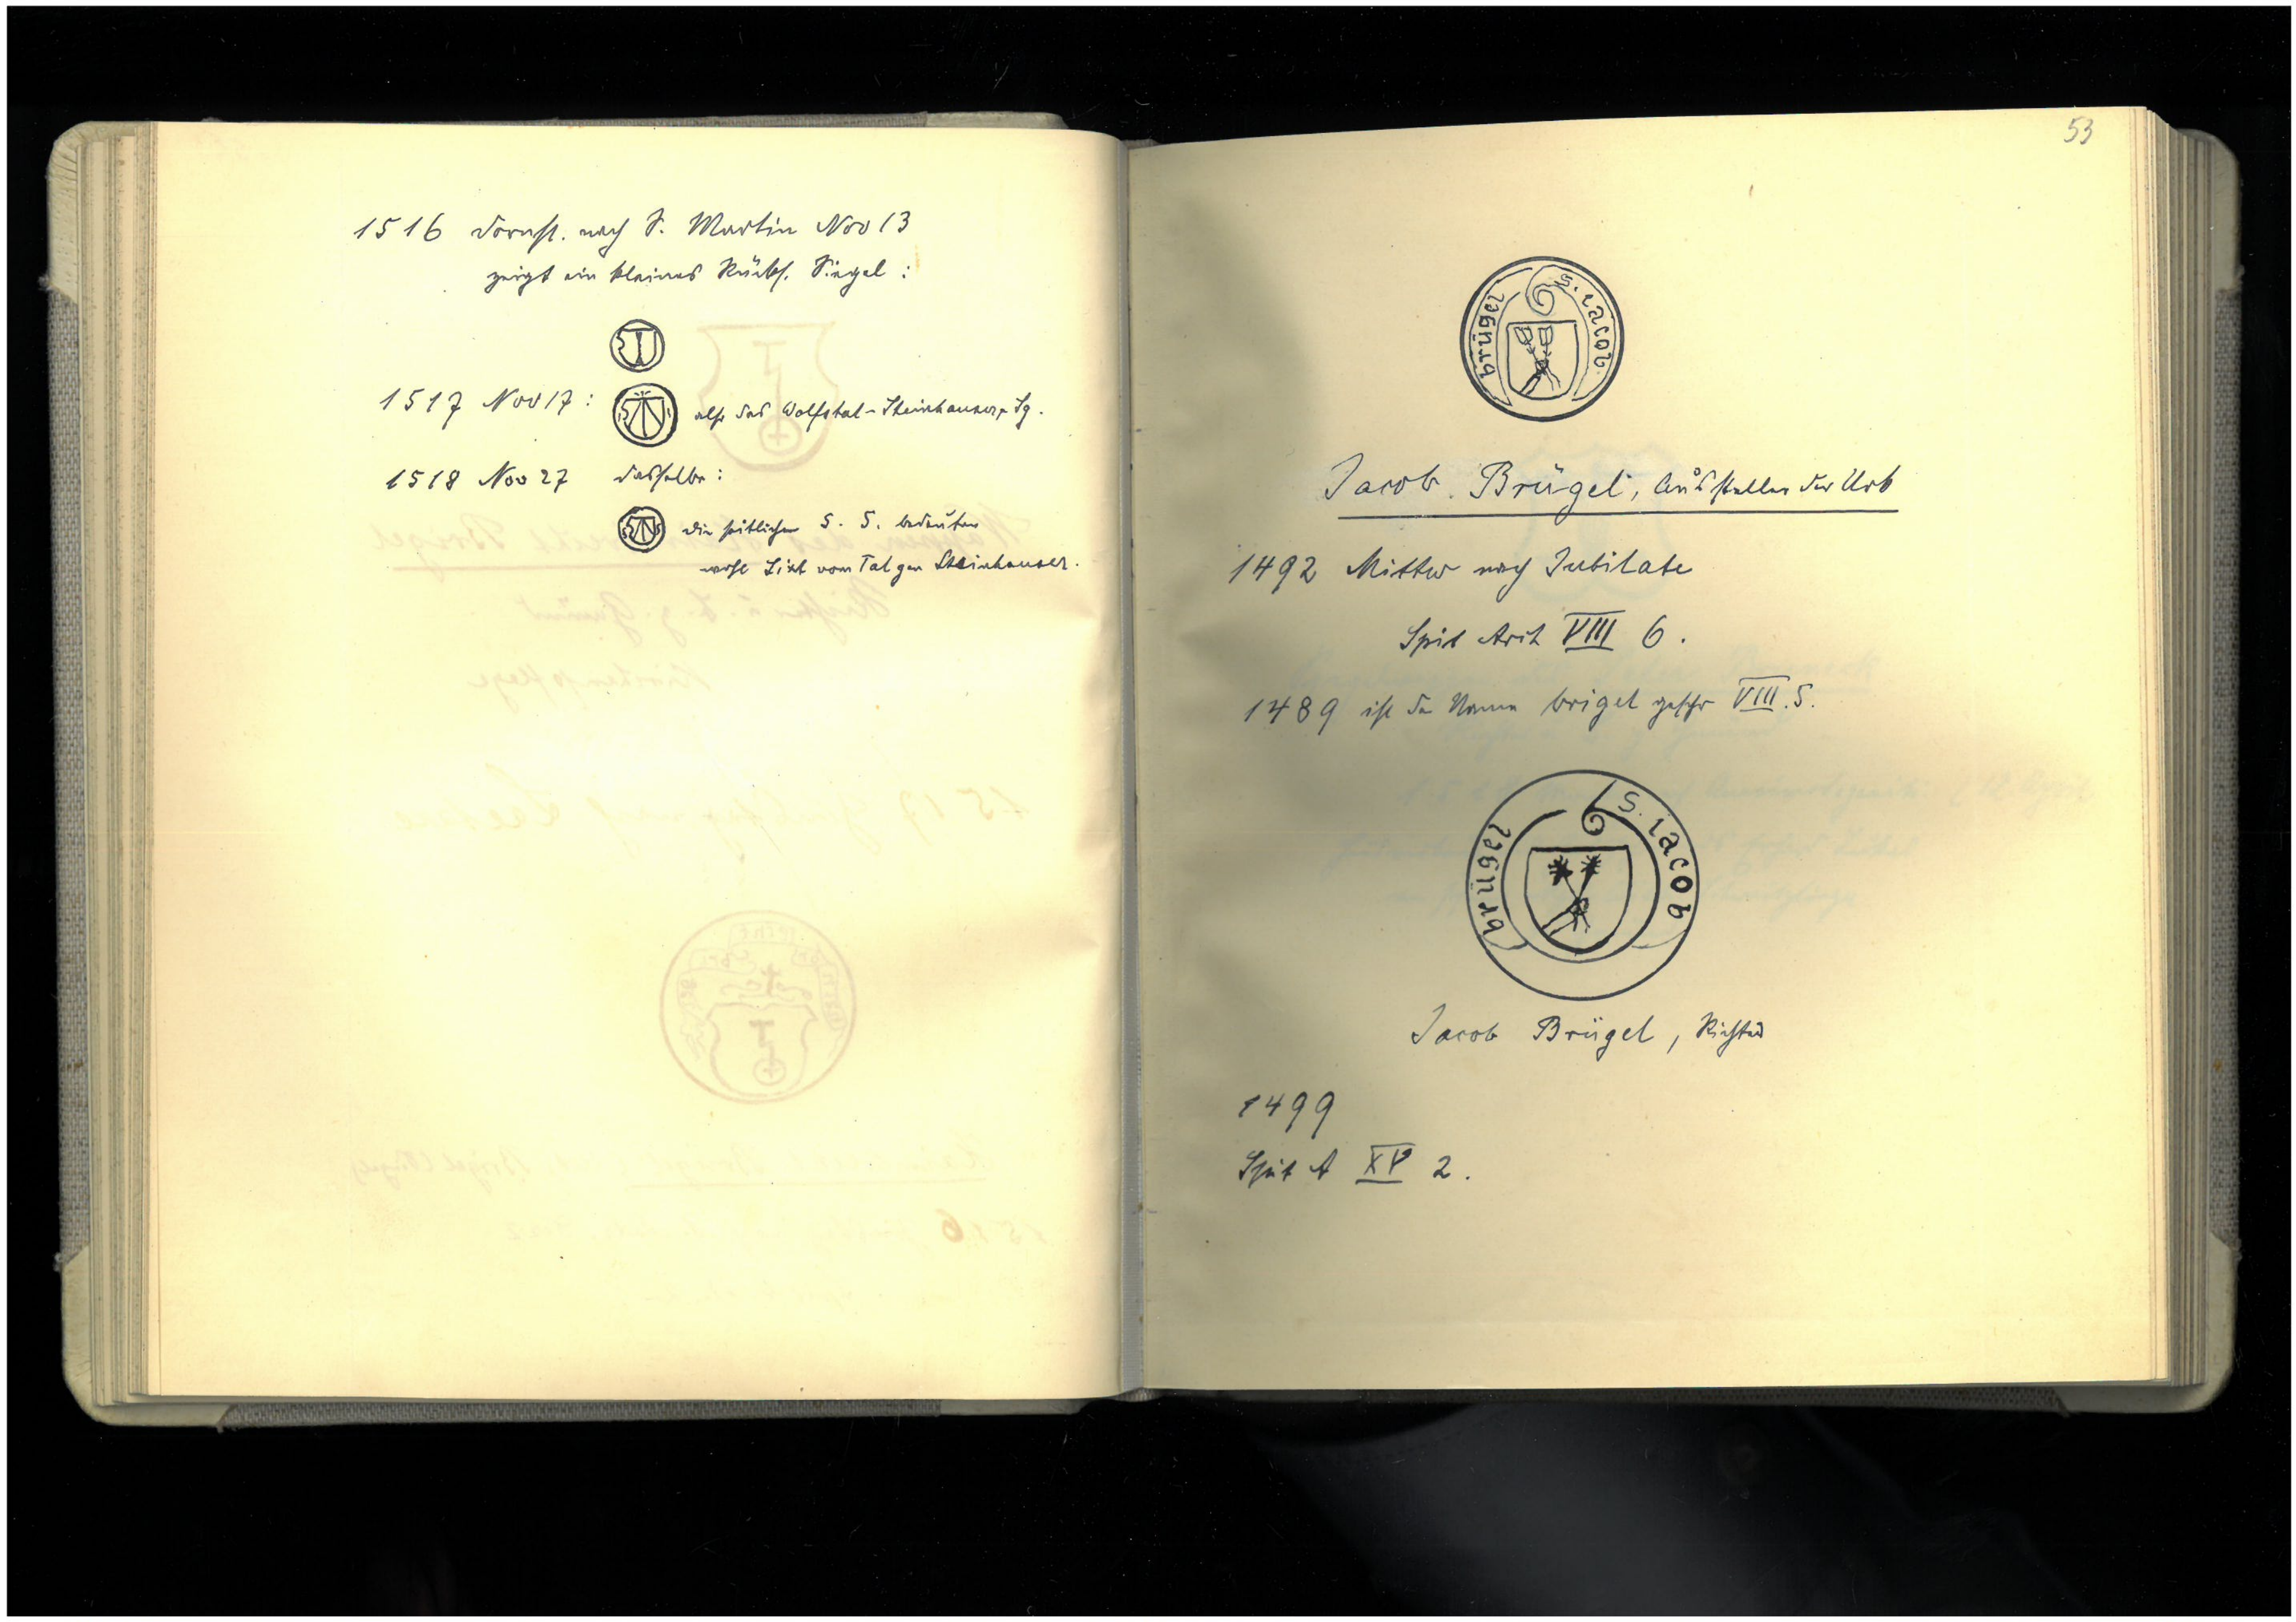 1516 Dornst. nach S. Martin Nov 13
zeigt ein kleines Rücks. Siegel :
1517 Nov 17 : also das Wolfstal-Steinhauser, Sg.
1518 Nov 27 dasselbe :
S S die seitlichen S. S. bedeuten
wohl Sixt vom Tal gen Steinhauser.
53
S. iacob brügel
Jacob Brügel, Aussteller der Urk
1492 Mittw nach Jubilate
Spit Arch VIII 6.
1489 ist der Name brigel geschr VIII. 5.
S. iacob brügel
Jacob Brügel, Richter
1499
Spit A XV 2.